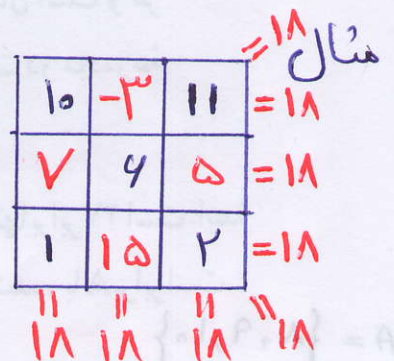 مثال
=۱۸
۱۰ -۳ ۱۱ =۱۸
۷ ۶ ۵ =۱۸
۱ ۱۵ ۲ =۱۸
= = = =
۱۸ ۱۸ ۱۸ ۱۸